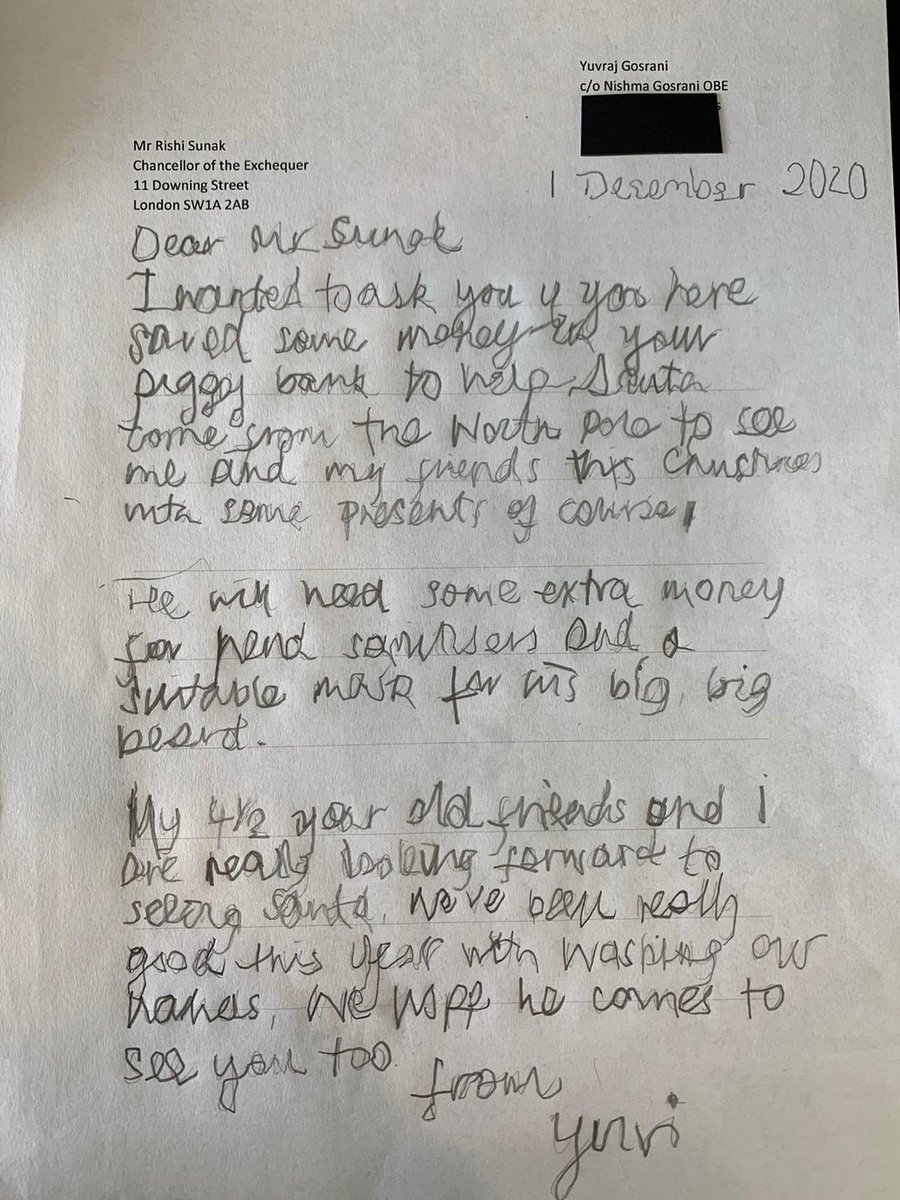 Yuvraj Gosrani
c/o Nishma Gosrani OBE
Mr Rishi Sunak
Chancellor of the Exchequer
11 Downing Street
London SW1A 2AB
1 Desember 2020
Dear Mr Sunak
I wanted to ask you if you have
saved some money in your
piggy bank to help Santa
come from the North pole to see
me and my friends this Christmas
with some presents of course,
He will need some extra money
for hand sanitisers and a
suitable mask for his big, big
beard.
My 4½ year old friends and I
are really looking forward to
seeing Santa. We've been really
good this year with washing our
hands, We hope he comes to
see you too
from
Yuvi